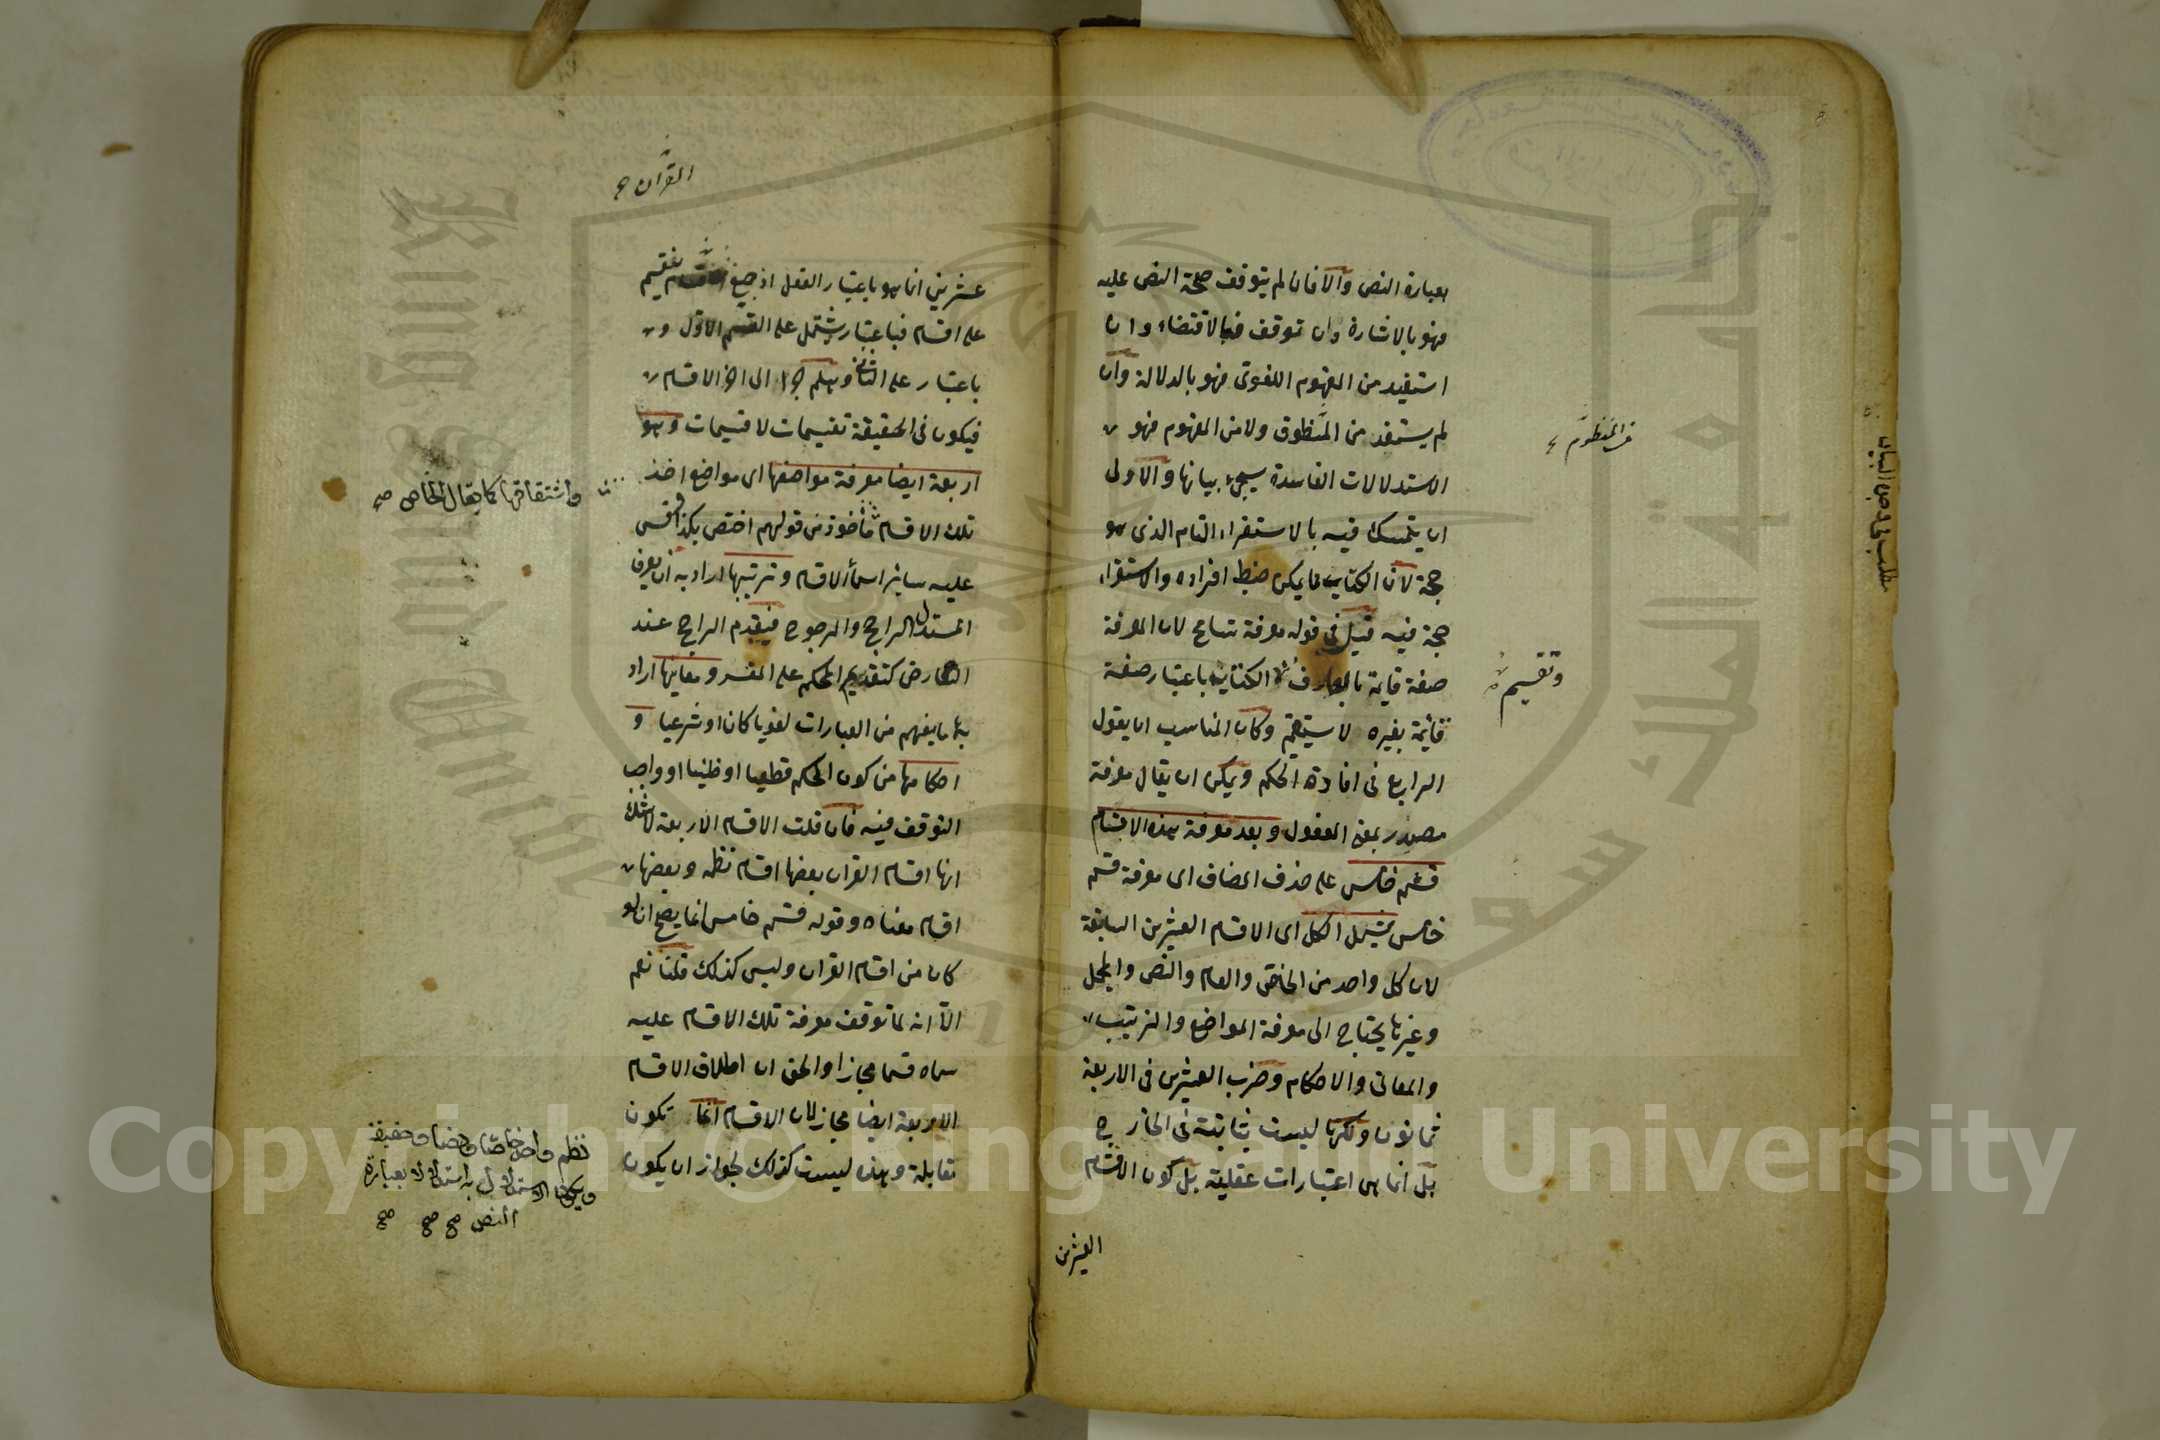 بعبارة النص والا فان لم يتوقف صحة النص عليه
فهو بالاشارة وان توقف فبالاقتضاء وان
استفيد من المفهوم اللغوى فهو بالدلالة وان
لم يستفد من المنظوق ولا من المفهوم فهو
الاستدلالات الفاسدة سيجئ بيانها والاولى
ان يتمسك فيه بالاستقراء التام الذى هو
حجة لان الكتاب مما يمكن ضبط افراده والاستقراء
حجة فيه قيل فى قوله معرفة تسامح لان المعرفة
صفة قايمة بالعارف الكتاب باعتبار صفة
قائمة بغيره لا يستقيم وكان المناسب ان يقول
الرابع فى افادة الحكم ويمكن ان يقال معرفة
مصدر بمعنى المفعول وبعد معرفة هذه الاقسام
قسم خامس على حذف المضاف اى معرفة قسم
خامس يشمل الكل اى الاقسام العشرين السابقة
لان كل واحد من الخاص والعام والنص والمجمل
وغيرها يحتاج الى معرفة المواضع والترتيب
والمعانى والاحكام وضرب العشرين فى الاربعة
ثمانون ولكنها ليست بثابتة فى الخارج
بل انما هى اعتبارات عقلية بل كون الاقسام
العشرين
وتقسيم
القرآن صح
عشرين انما هو باعتبار العقل اذ جميع يقسيم
على اقسام فباعتبار يشتمل على القسم الاول و
باعتبار على الثانى وهلم جرا الى اخر الاقسام
فيكون فى الحقيقة تقسيمات لا قسيمات وهو
اربعة ايضا معرفة مواضعها اى مواضع اخذ
تلك الاقسام مأخوذ من قولهم اختص بكذا فقس
عليه ساير اسماء الاقسام وترتيبها اراد به ان يعرف
المستدل الراجح والمرجوح فيقدم الراجح عند
التعارض كتقديم المحكم على المفسر ومعاينها اراد
بها ما يفهم من العبارات لغويا كان او شرعيا و
احكامها من كون الحكم قطعيا او ظنيا او واجب
التوقف فيه فان قلت الاقسام الاربعة لا شك
انها اقسام القران بعضها اقسام نظمه وبعضها
اقسام معناه وقوله قسم خامس انما يصح ان لو
كان من اقسام القران وليس كذلك قلنا نعم
الا انه لما توقف معرفة تلك الاقسام عليه
سماه قسما مجازا والحق ان اطلاق الاقسام
الاربعة ايضا مجاز لان الاقسام انما تكون
تقابلة وهذه ليست كذلك لجواز ان يكون
واشتقاقها كما يقال الخاص صح
نظم واحد خاصا ونصا وحقيقة
ويكون الاستدلال به استدلالا بعبارة
النص صح صح صح
Copyright © King Saud University